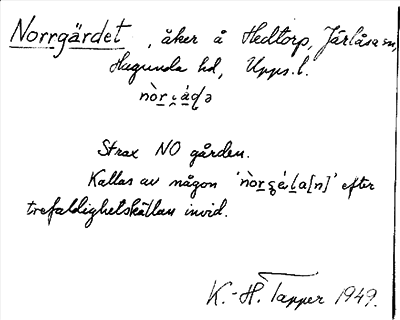 Norrgärdet, åker å Hedtorp, Järlåsa sn,
Hagunda hd, Upps. l.
Strax NO gården.
Kallas av någon efter
trefaldighetskällan invid.
K.-H. Tapper 1949.